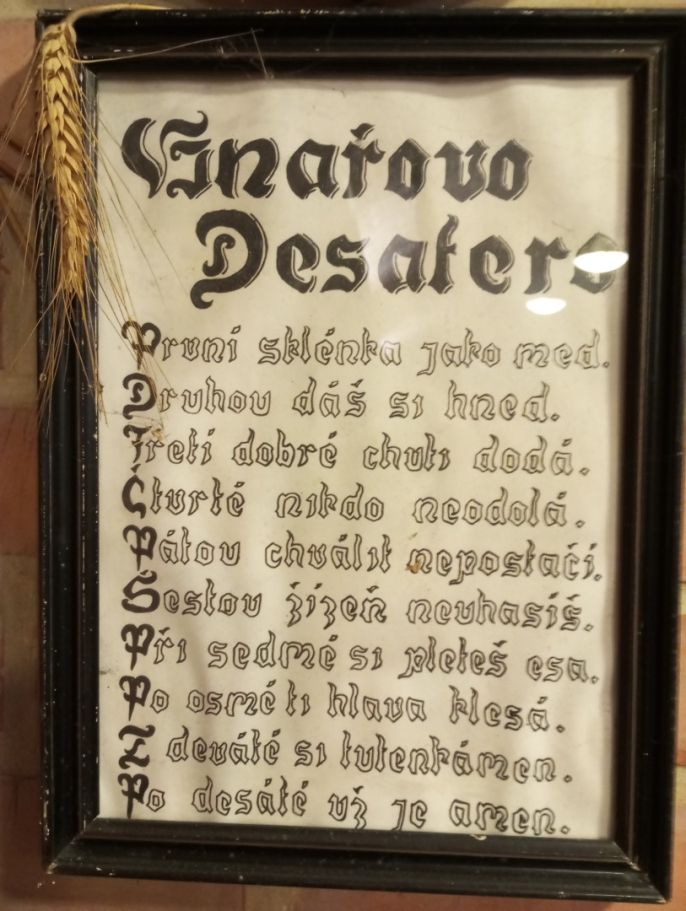 Vinařovo
Desatero
První sklénka jako med.
Druhou dáš si hned.
Třetí dobré chuti dodá.
Čtvrté nikdo neodolá.
Pátou chválit nepostačí.
Šestou žízeň neuhasíš.
Při sedmé si pleteš esa.
Po osmé ti hlava klesá.
Z deváté si tutenkámen.
Po desáté už je amen.